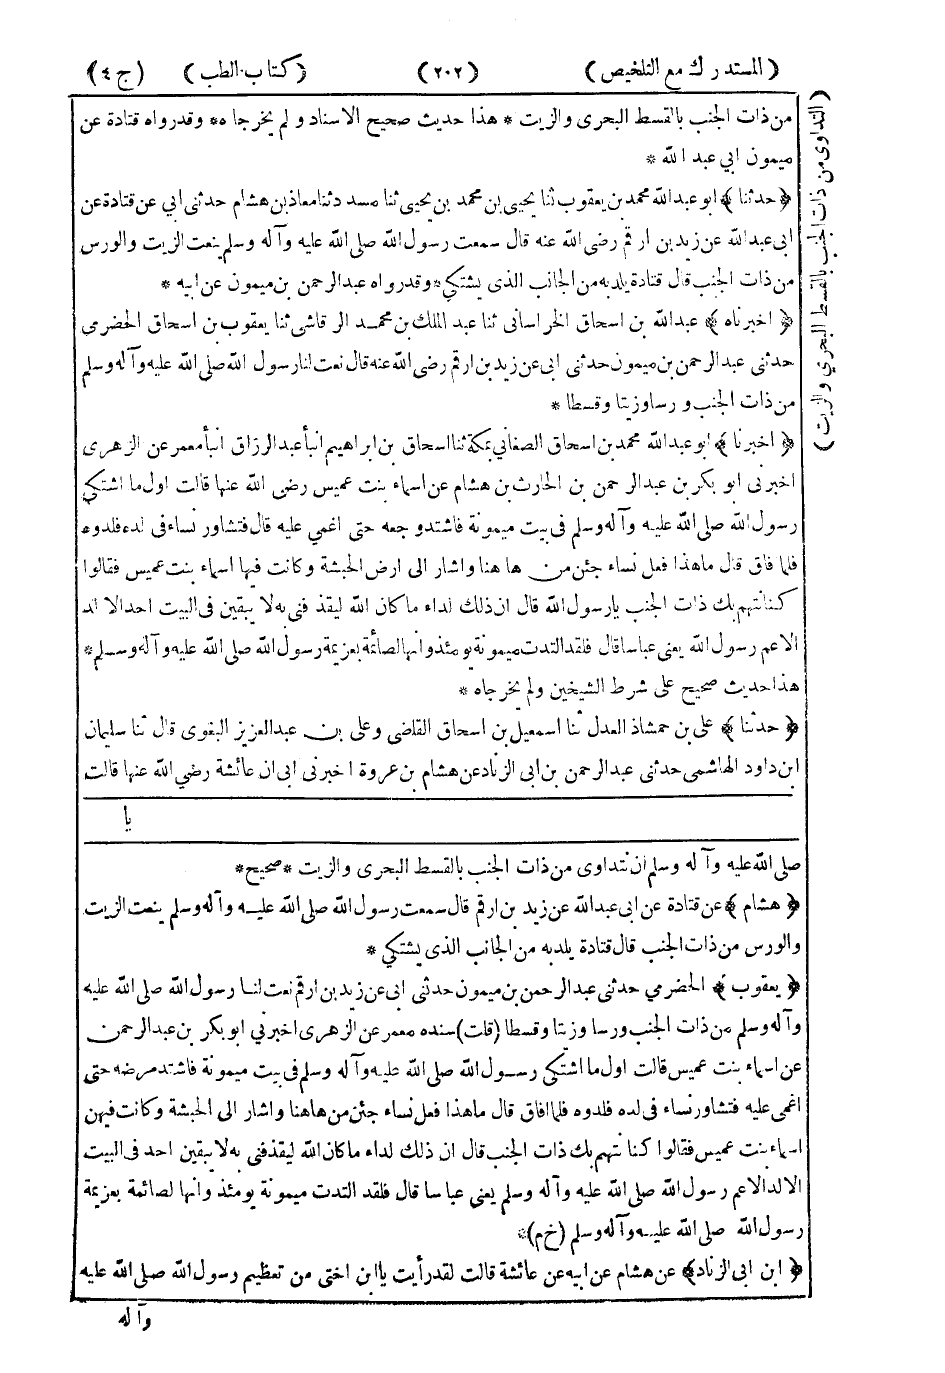 (المستدرك مع التلخيص) (٢٠٢) (كتاب الطب) (ج ٤)
(التداوى من ذات الجنب بالقسط البحري والزيت)
من ذات الجنب بالقسط البحرى والزيت * هذا حديث صحيح الاسناد ولم يخرجاه * وقد رواه قتادة عن
ميمون ابي عبد الله *
﴿ حدثنا ﴾ ابو عبدالله محمد بن يعقوب ثنا يحيى بن محمد بن يحيى ثنا مسدد ثنا معاذ بن هشام حدثنى ابي عن قتادة عن
ابى عبدالله عن زيد بن ارقم رضى الله عنه قال سمعت رسول الله صلى الله عليه وآله وسلم ينعت الزيت والورس
من ذات الجنب قال قتادة يلد به من الجانب الذى يشتكي * وقد رواه عبدالرحمن بن ميمون عن ابيه *
﴿ اخبرناه ﴾ عبدالله بن اسحاق الخراسانى ثنا عبد الملك بن محمد الرقاشى ثنا يعقوب بن اسحاق الحضرمى
حدثنى عبدالرحمن بن ميمون حدثنى ابى عن زيد بن ارقم رضى الله عنه قال نعت لنا رسول الله صلى الله عليه وآله وسلم
من ذات الجنب ورسا وزيتا وقسطا *
﴿ اخبرنا ﴾ ابو عبدالله محمد بن اسحاق الصغانى بمكة ثنا اسحاق بن ابراهيم انبأ عبدالرزاق انبأ معمر عن الزهرى
اخبرنى ابو بكر بن عبدالرحمن بن الحارث بن هشام عن اسماء بنت عميس رضى الله عنها قالت اول ما اشتكي
رسول الله صلى الله عليه وآله وسلم فى بيت ميمونة فاشتد وجعه حتى اغمي عليه قال فتشاور نساء فى لده فلدوه
فلما فاق قال ما هذا فعل نساء جئن من ها هنا واشار الى ارض الحبشة وكانت فيها اسماء بنت عميس فقالوا
كنا نتهم بك ذات الجنب يا رسول الله قال ان ذلك لداء ما كان الله ليقذفنى به لا يبقين فى البيت احد الا لد
الا عم رسول الله يعنى عباسا قال فلقد التدت ميمونة يومئذ وانها لصائمة بعزيمة رسول الله صلى الله عليه وآله وسلم *
هذا حديث صحيح على شرط الشيخين ولم يخرجاه *
﴿ حدثنا ﴾ على بن حمشاذ العدل ثنا اسمعيل بن اسحاق القاضى وعلى بن عبدالعزيز البغوى قال ثنا سليمان
ابن داود الهاشمى حدثنى عبدالرحمن بن ابى الزناد عن هشام بن عروة اخبرنى ابى ان عائشة رضي الله عنها قالت
يا
صلى الله عليه وآله وسلم ان نتداوى من ذات الجنب بالقسط البحرى والزيت * صحيح *
﴿ هشام ﴾ عن قتادة عن ابى عبدالله عن زيد بن ارقم قال سمعت رسول الله صلى الله عليه وآله وسلم ينعت الزيت
والورس من ذات الجنب قال قتادة يلد به من الجانب الذى يشتكي *
﴿ يعقوب ﴾ الحضرمي حدثنى عبدالرحمن بن ميمون حدثنى ابى عن زيد بن ارقم نعت لنا رسول الله صلى الله عليه
وآله وسلم من ذات الجنب ورسا وزيتا وقسطا (قلت) سنده معمر عن الزهرى اخبرني ابو بكر بن عبدالرحمن
عن اسماء بنت عميس قالت اول ما اشتكى رسول الله صلى الله عليه وآله وسلم فى بيت ميمونة فاشتد مرضه حتى
اغمى عليه فتشاور نساء فى لده فلدوه فلما افاق قال ما هذا فعل نساء جئن من هاهنا واشار الى الحبشة وكانت فيهن
اسماء بنت عميس فقالوا كنا نتهم بك ذات الجنب قال ان ذلك لداء ما كان الله ليقذفنى به لا يبقين احد فى البيت
الا لد الا عم رسول الله صلى الله عليه وآله وسلم يعنى عباسا قال فلقد التدت ميمونة يومئذ وانها لصائمة بعزيمة
رسول الله صلى الله عليه وآله وسلم (خ م) *
﴿ ابن ابى الزناد ﴾ عن هشام عن ابيه عن عائشة قالت لقد رأيت يا ابن اختى من تعظيم رسول الله صلى الله عليه
وآله